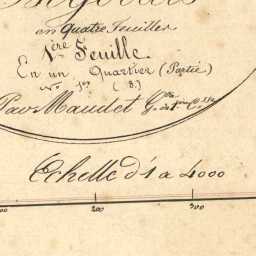 en quatre Feuilles
1ère Feuille.
En un Quartier (Partie)
(8.)
Par Maudet
Echelle d'1 a 4000
200 300